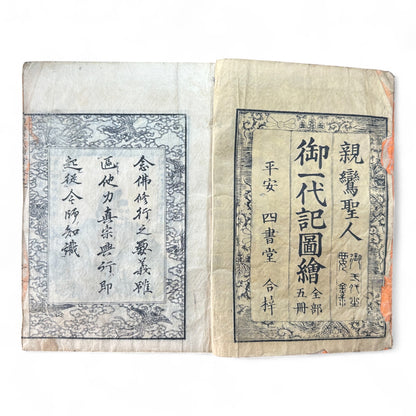 親鸞聖人
御一代記圖繪
全部
五冊
平安 四書堂 合梓
念佛修行之要義雖
區他力真宗興行即
起從今師知識